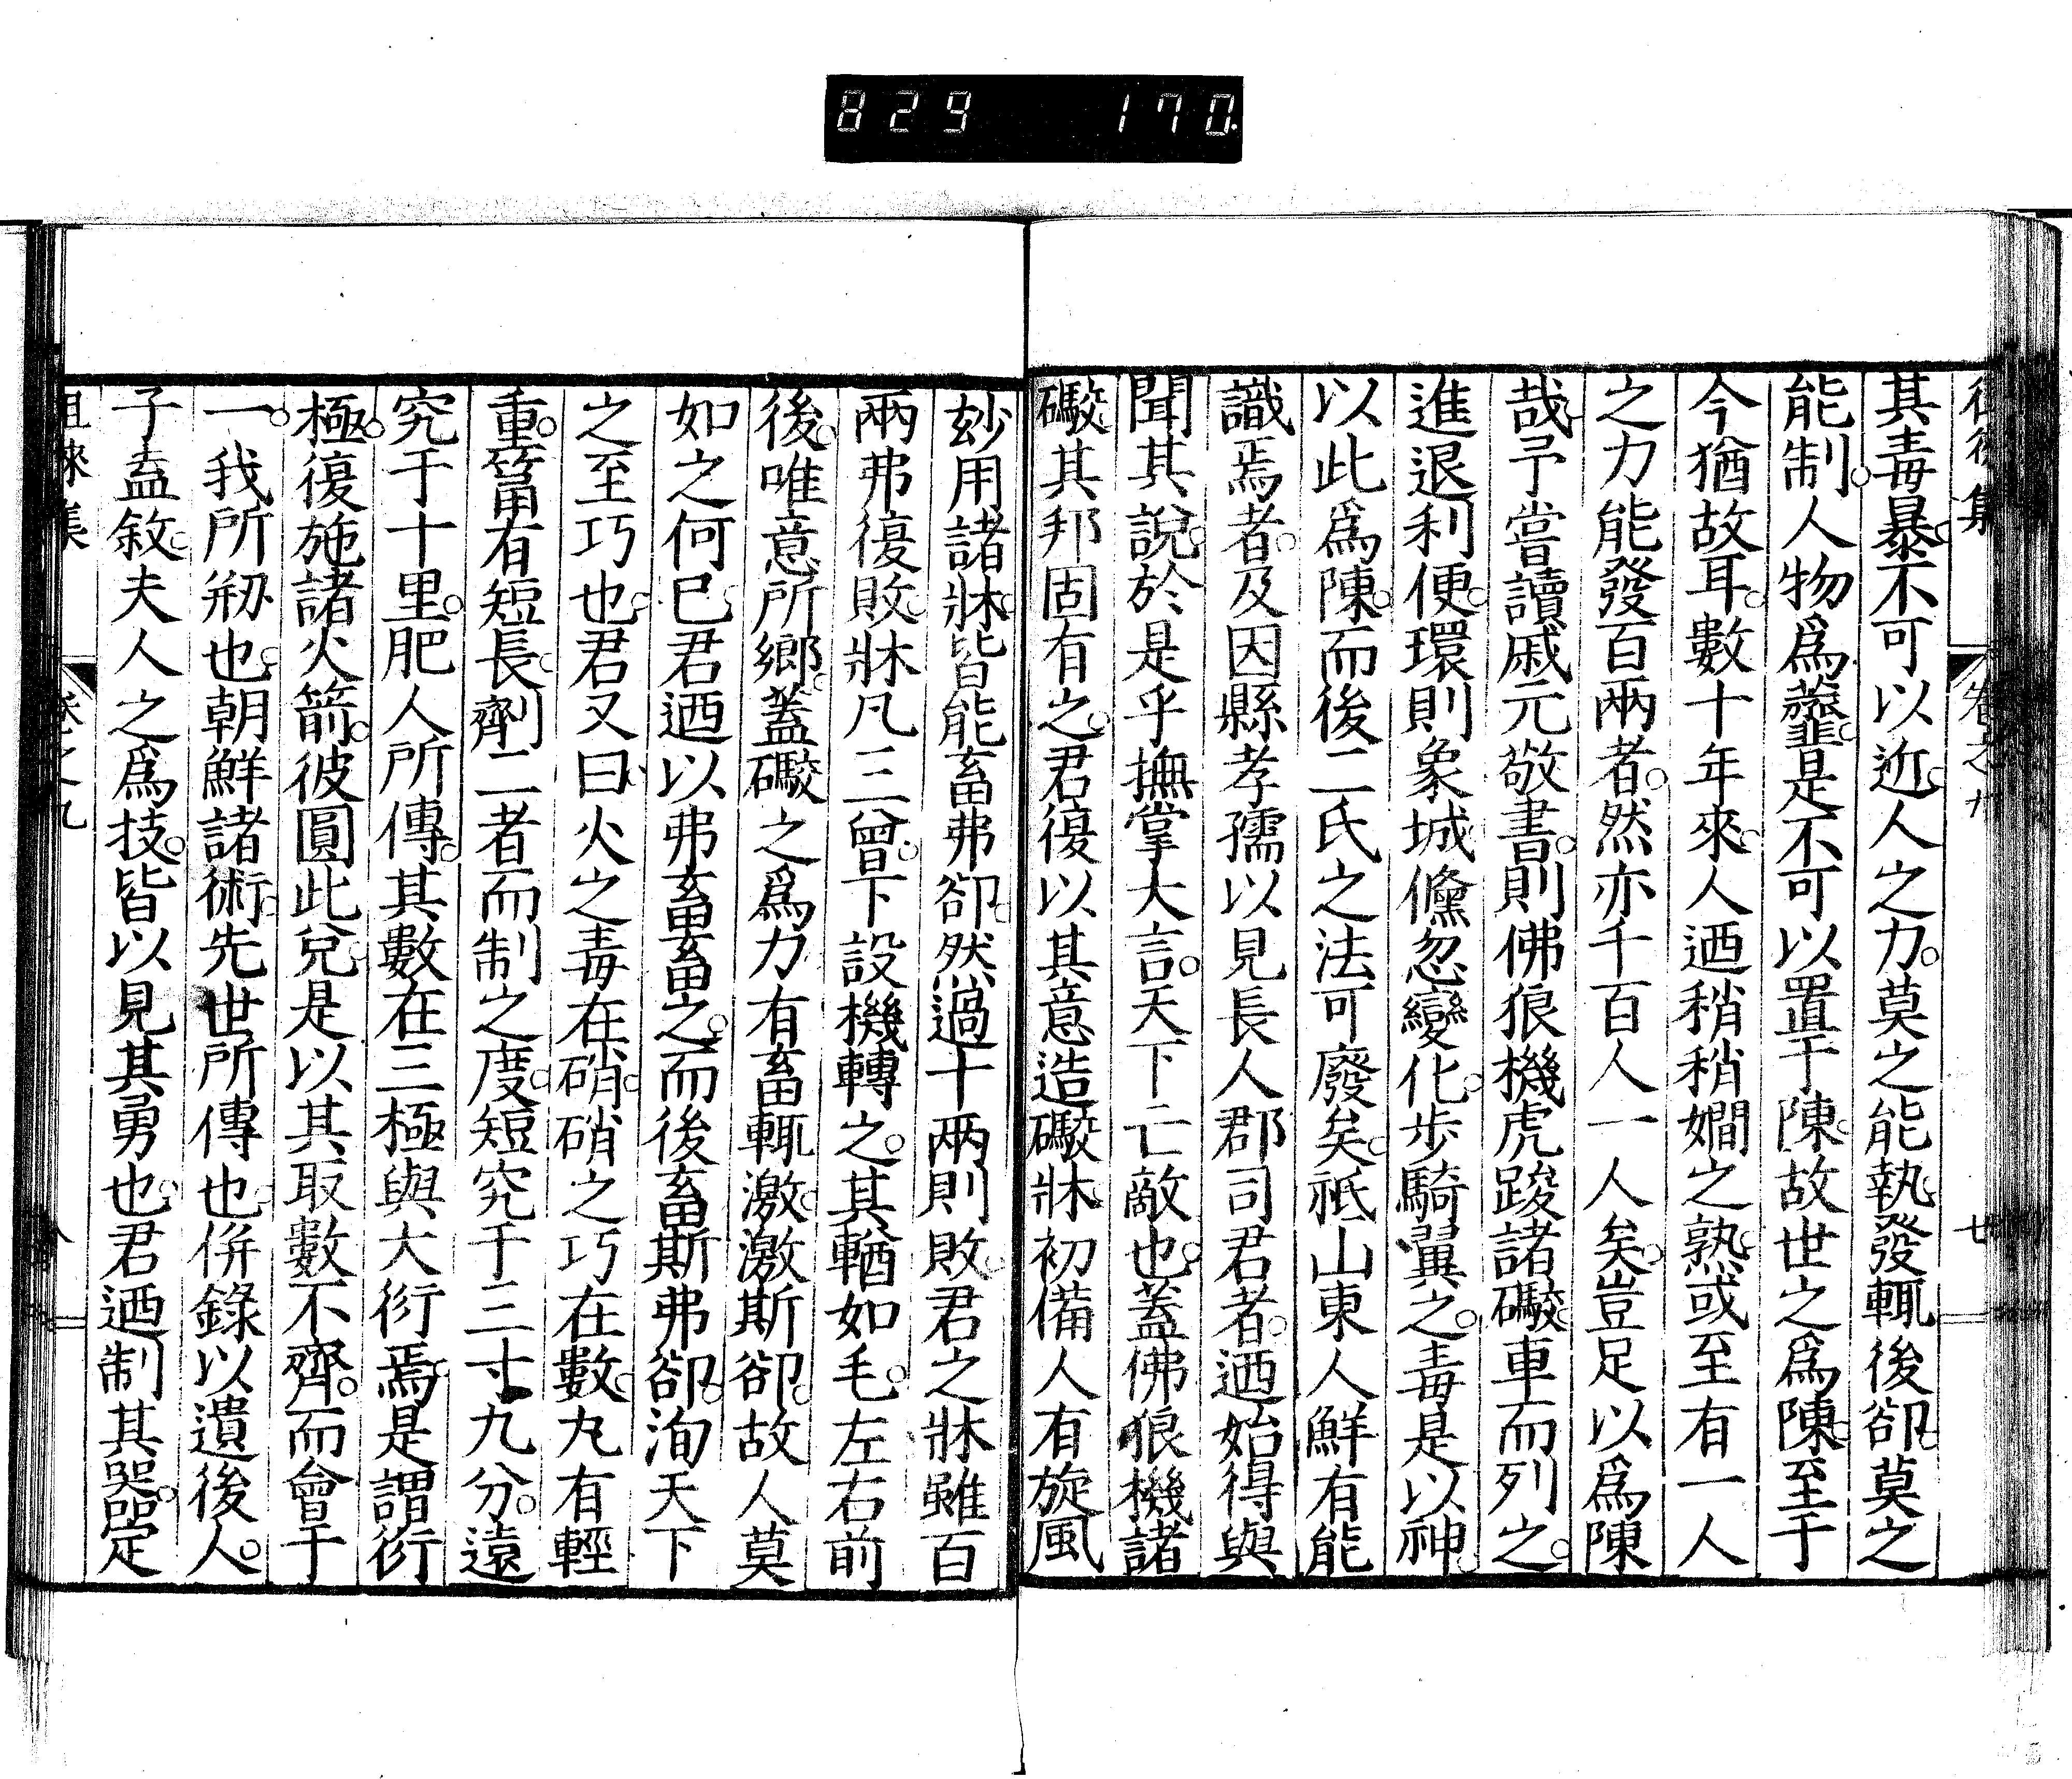 829 170.
其毒暴不可以近人之力莫之能執發輒後卻莫之
能制人物爲虀是不可以置于陳故世之爲陳至于
今猶故耳數十年來人迺稍稍嫺之熟或至有一人
之力能發百兩者然亦千百人一人矣豈足以爲陳
哉予嘗讀戚元敬書則佛狼機虎踆諸礮車而列之
進退利便環則象城儵忽變化步騎翼之毒是以神
以此爲陳而後二氏之法可廢矣祇山東人鮮有能
識焉者及因縣孝孺以見長人郡司君者迺始得與
聞其說於是乎撫掌大言天下亡敵也蓋佛狼機諸
礮其邦固有之君復以其意造礮牀初備人有旋風
玅用諸牀皆能畜弗卻然過十兩則敗君之牀雖百
兩弗復敗牀凡三曾下設機轉之其輶如毛左右前
後唯意所鄉蓋礮之爲力有畜輒激激斯卻故人莫
如之何巳君迺以弗畜畜之而後畜斯弗卻洵天下
之至巧也君又曰火之毒在硝硝之巧在數丸有輕
重筩有短長劑二者而制之度短究于三寸九分遠
究于十里肥人所傳其數在三極與大衍焉是謂衍
極復施諸火箭彼圓此兌是以其取數不齊而會于
一我所剏也朝鮮諸術先世所傳也併錄以遺後人
子盍敘夫人之爲技皆以見其勇也君迺制其器定
徂徠集 卷之九